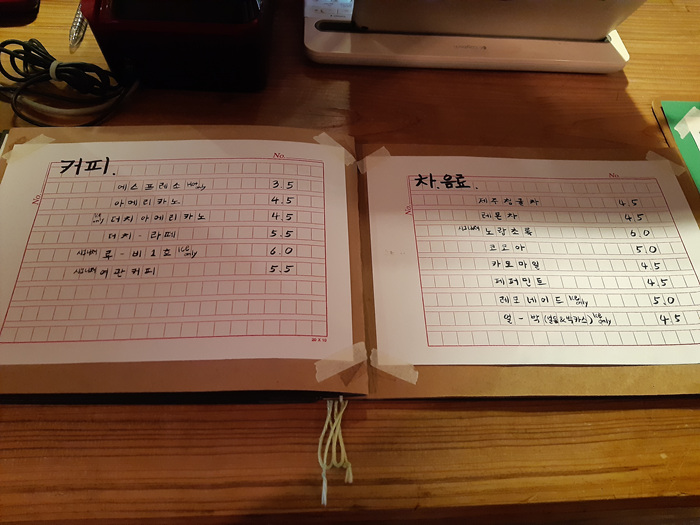 커피.
No.
No.
에스프레소 Hot only 3.5
아메리카노 4.5
ice only 더치아메리카노 4.5
더치-라떼 5.5
시그니처 류-비1호 ice only 6.0
시그니처 여관커피 5.5
20 X 10
차.음료.
No.
No.
제주청귤차 4.5
레몬차 4.5
시그니처 노랑초록 6.0
코코아 5.0
카모마일 4.5
페퍼민트 4.5
레모네이드 ice only 5.0
얼-박 (얼음&박카스) ice only 4.5